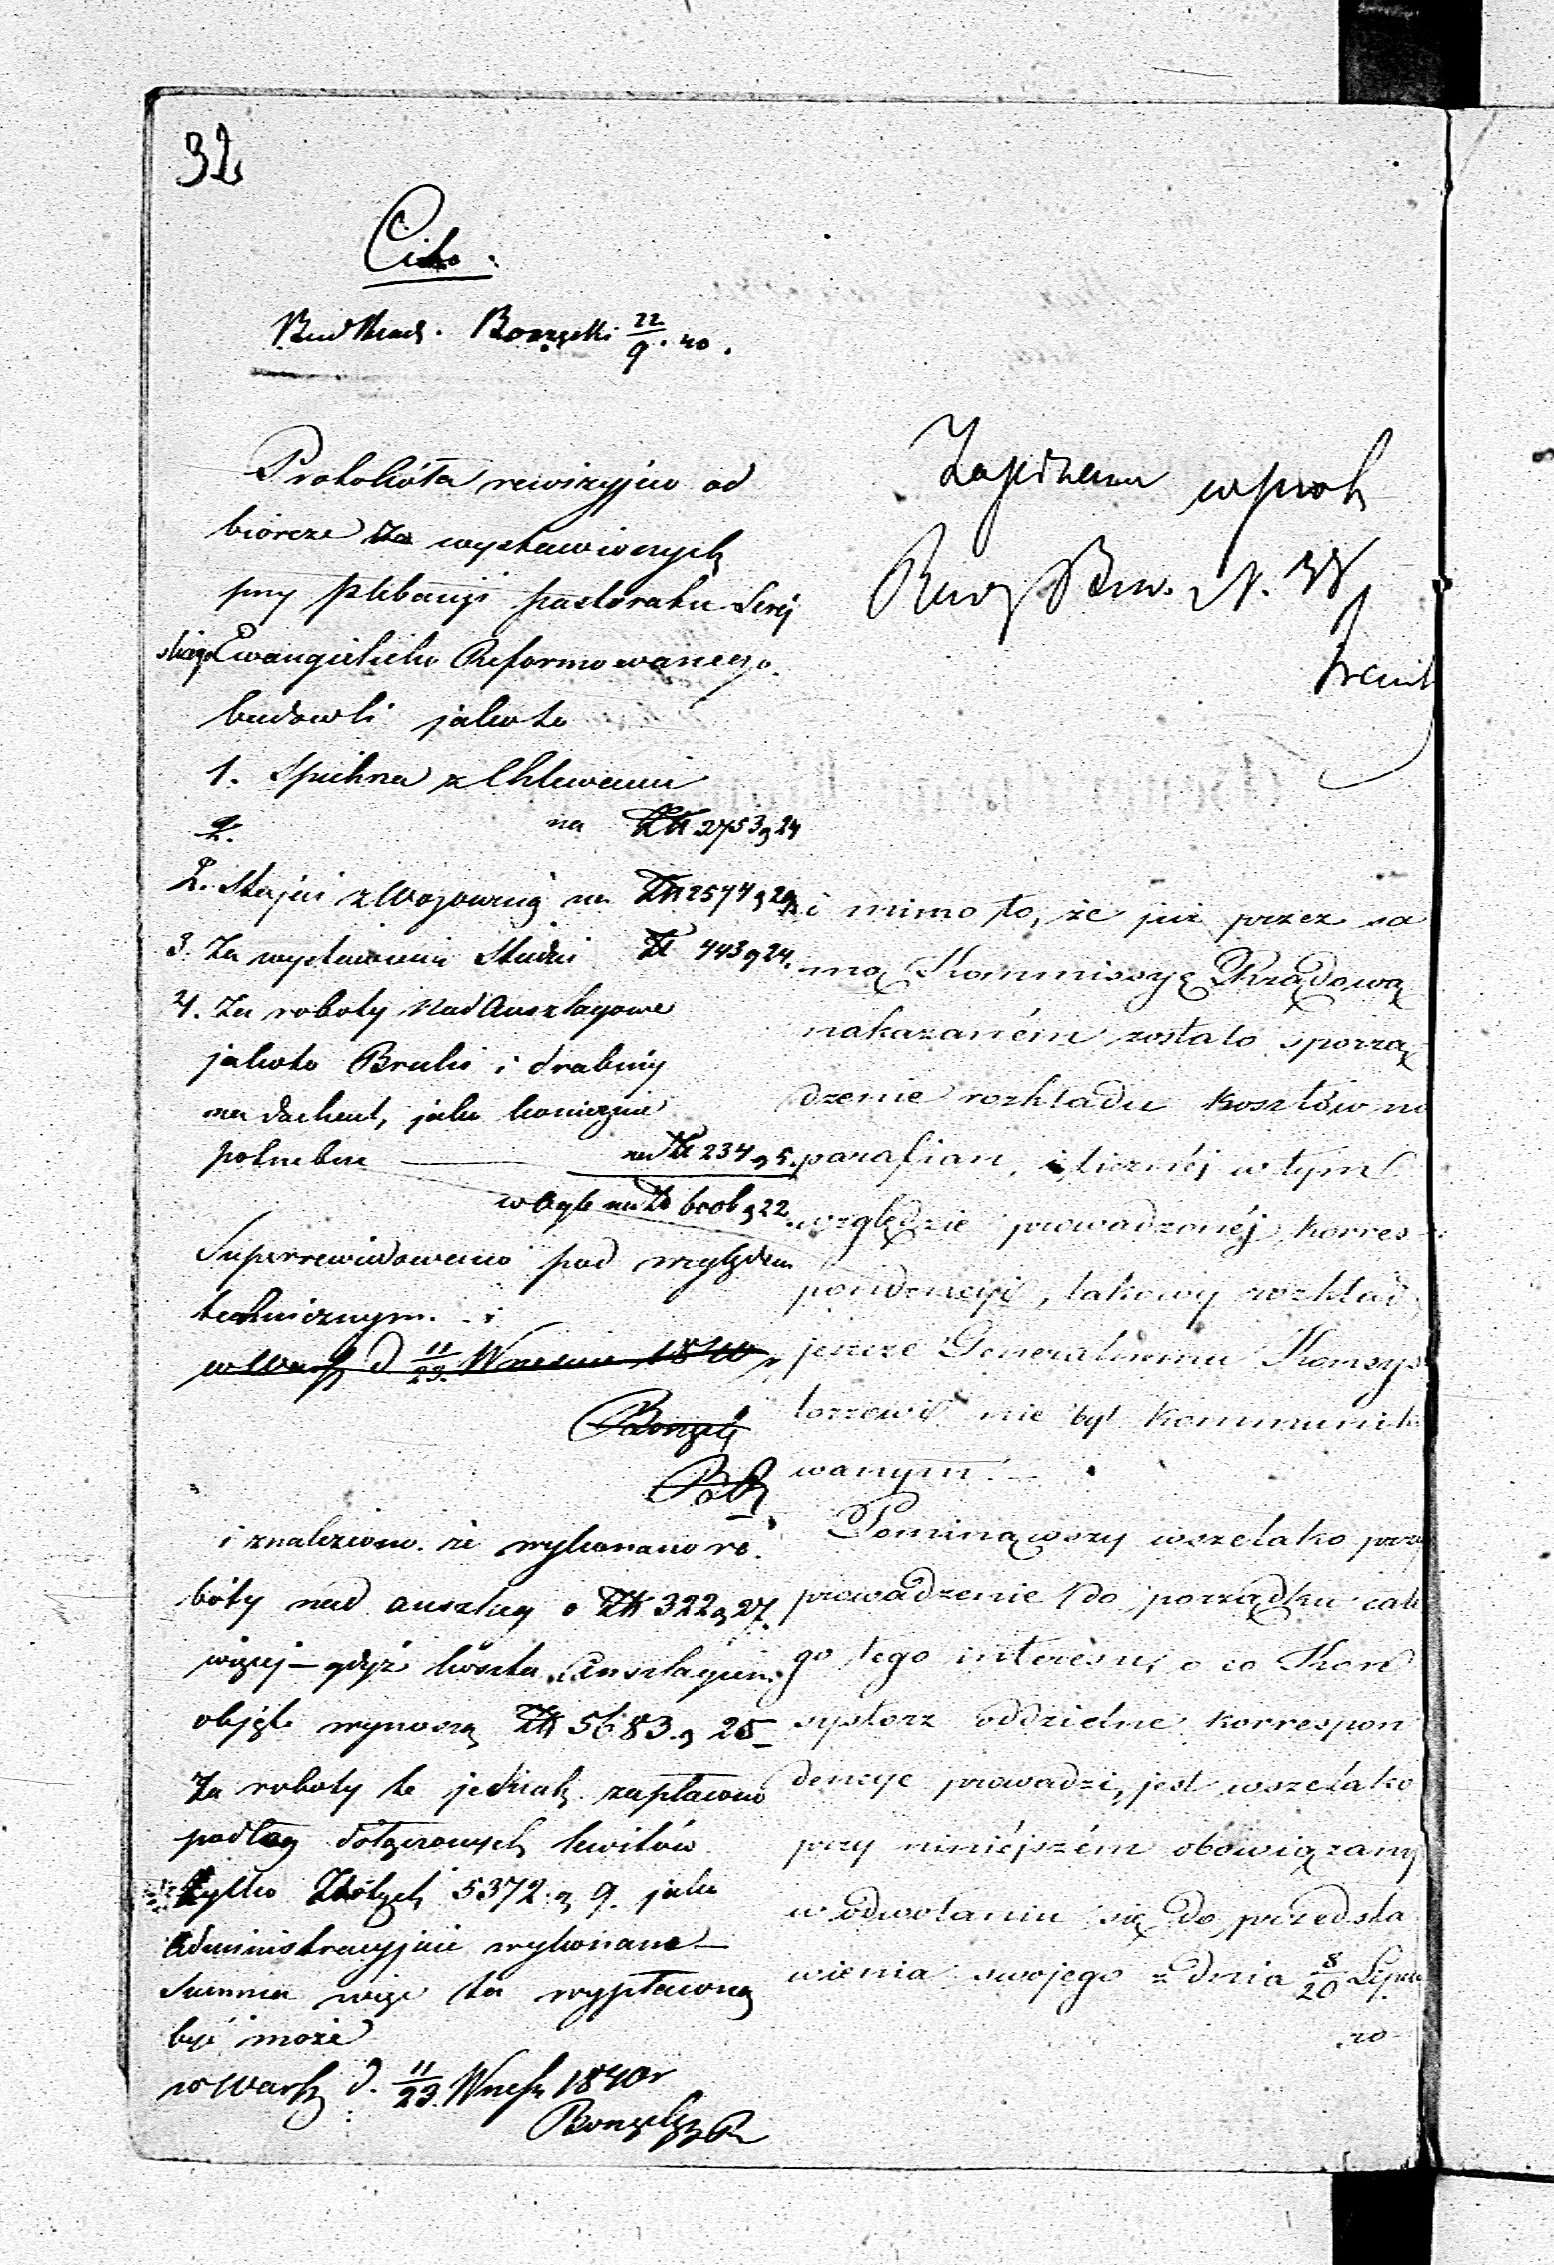 32
Cito.
Bud Rząd. Borzęcki 22/9. 40.
Protokóła rewizyjno od
biorcze za wystawionych
przy plebanji pastoratu Serej
skiego Ewangielicko Reformowanego
budowli jakoto
1. Spichrza z Chlewami
2. na Złt 2753 g 24
2. Stajni z Wozownią na Złt 2574 g 29
3. Za wystawienie Studni Zł 443 g 24.
4. Za roboty nad Anszlagowe
jakoto Bruki i drabiny
na dachach, jako koniecznie
potrzebne na Zł 234 g 5.
w ogóle na Zł 6006 g 22.
Superrewidowano pod względem
technicznym. i
w Warsz d 11/23. Września 1840 r
Borzęcki
i znaleziono. że wykonano ro
bóty nad anszlag o Złt 322 g 27.
więcej – gdyż koszta Anszlagiem
objęte wynoszą Złt 5683. g 25
Za roboty te jednak zapłacono
podług dołączonych kwitów
tylko Złotych 5372. g 9. jako
Administracyjnie wykonane
Summa więc ta wypłaconą
być może
w Warsz d. 11/23. Wrześ 1840 r
Borzęcki
Zapisano w prot
N. 38
i mimo to, że już przez sa
mą Kommissyę Rządową
nakazaném zostało sporzą
dzenie rozkładu kosztów na
parafian, i licznéj w tym
względzie prowadzonéj korres
pondencyi, takowy rozkład
jeszcze Generalnemu Konsys
torzowi nie był kommuniko
wanym.
Pominąwszy wszelako przy
prowadzenie do porządku całe
go tego interesu, o co Kon
systorz oddzielne korrespon
dencye prowadzi, jest wszelako
przy niniéjszém obowiązany
w odwołaniu się do przedsta
wienia swojego z dnia 8/20 Lipca